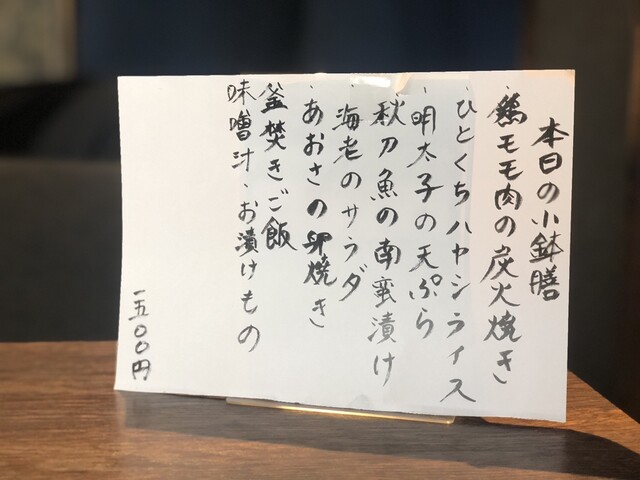 本日の小鉢膳
・鶏モモ肉の炭火焼き
・ひとくちハヤシライス
・明太子の天ぷら
・秋刀魚の南蛮漬け
・海老のサラダ
・あおさの卵焼き
釜焚きご飯
味噌汁、お漬けもの
一五〇〇円